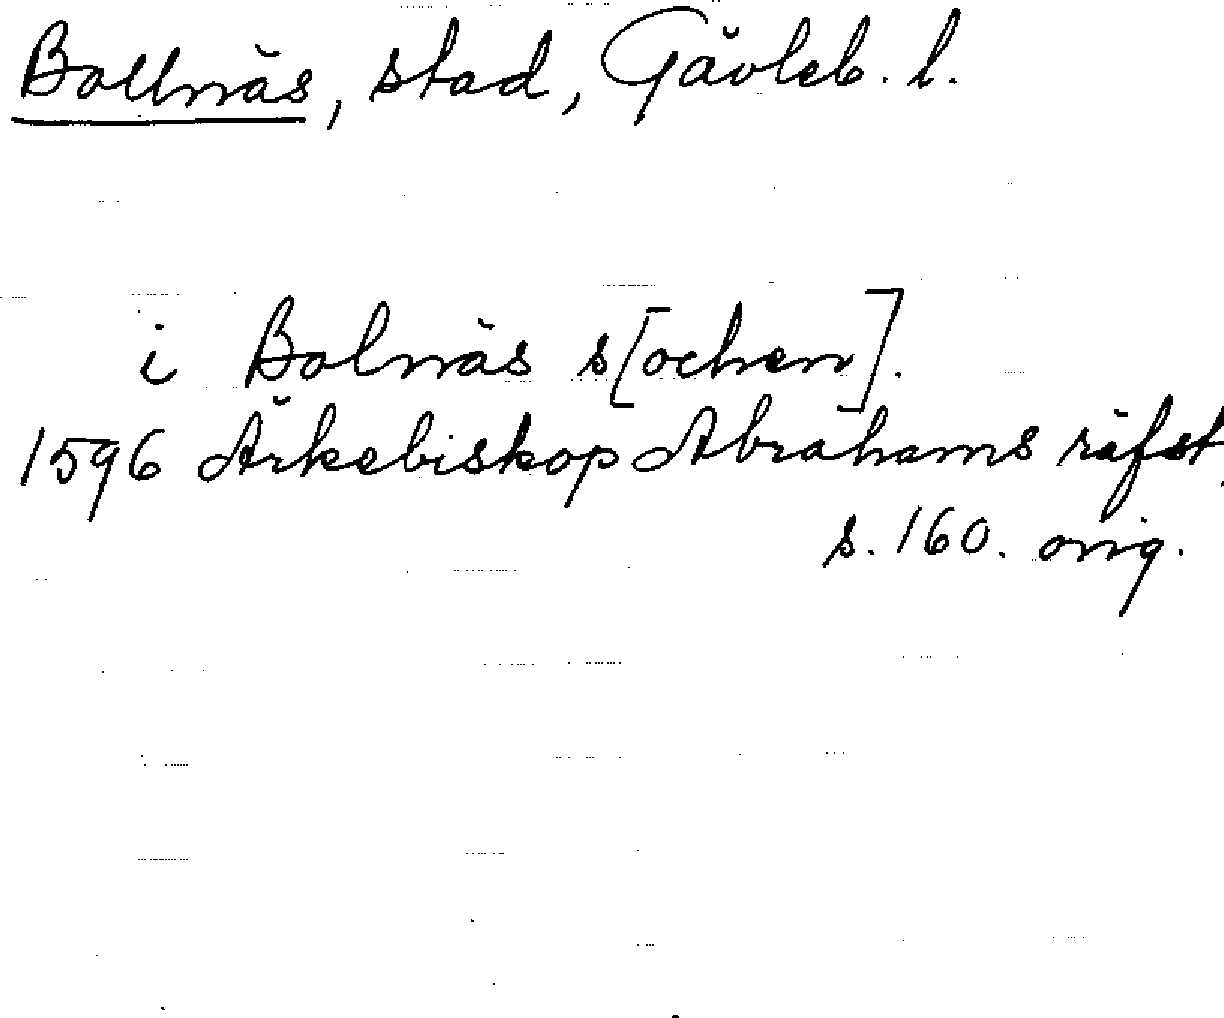 Bollnäs, stad, Gävleb. l.
i Bolnäs s[ochen].
1596 Ärkebiskop Abrahams räfst,
s. 160. orig.